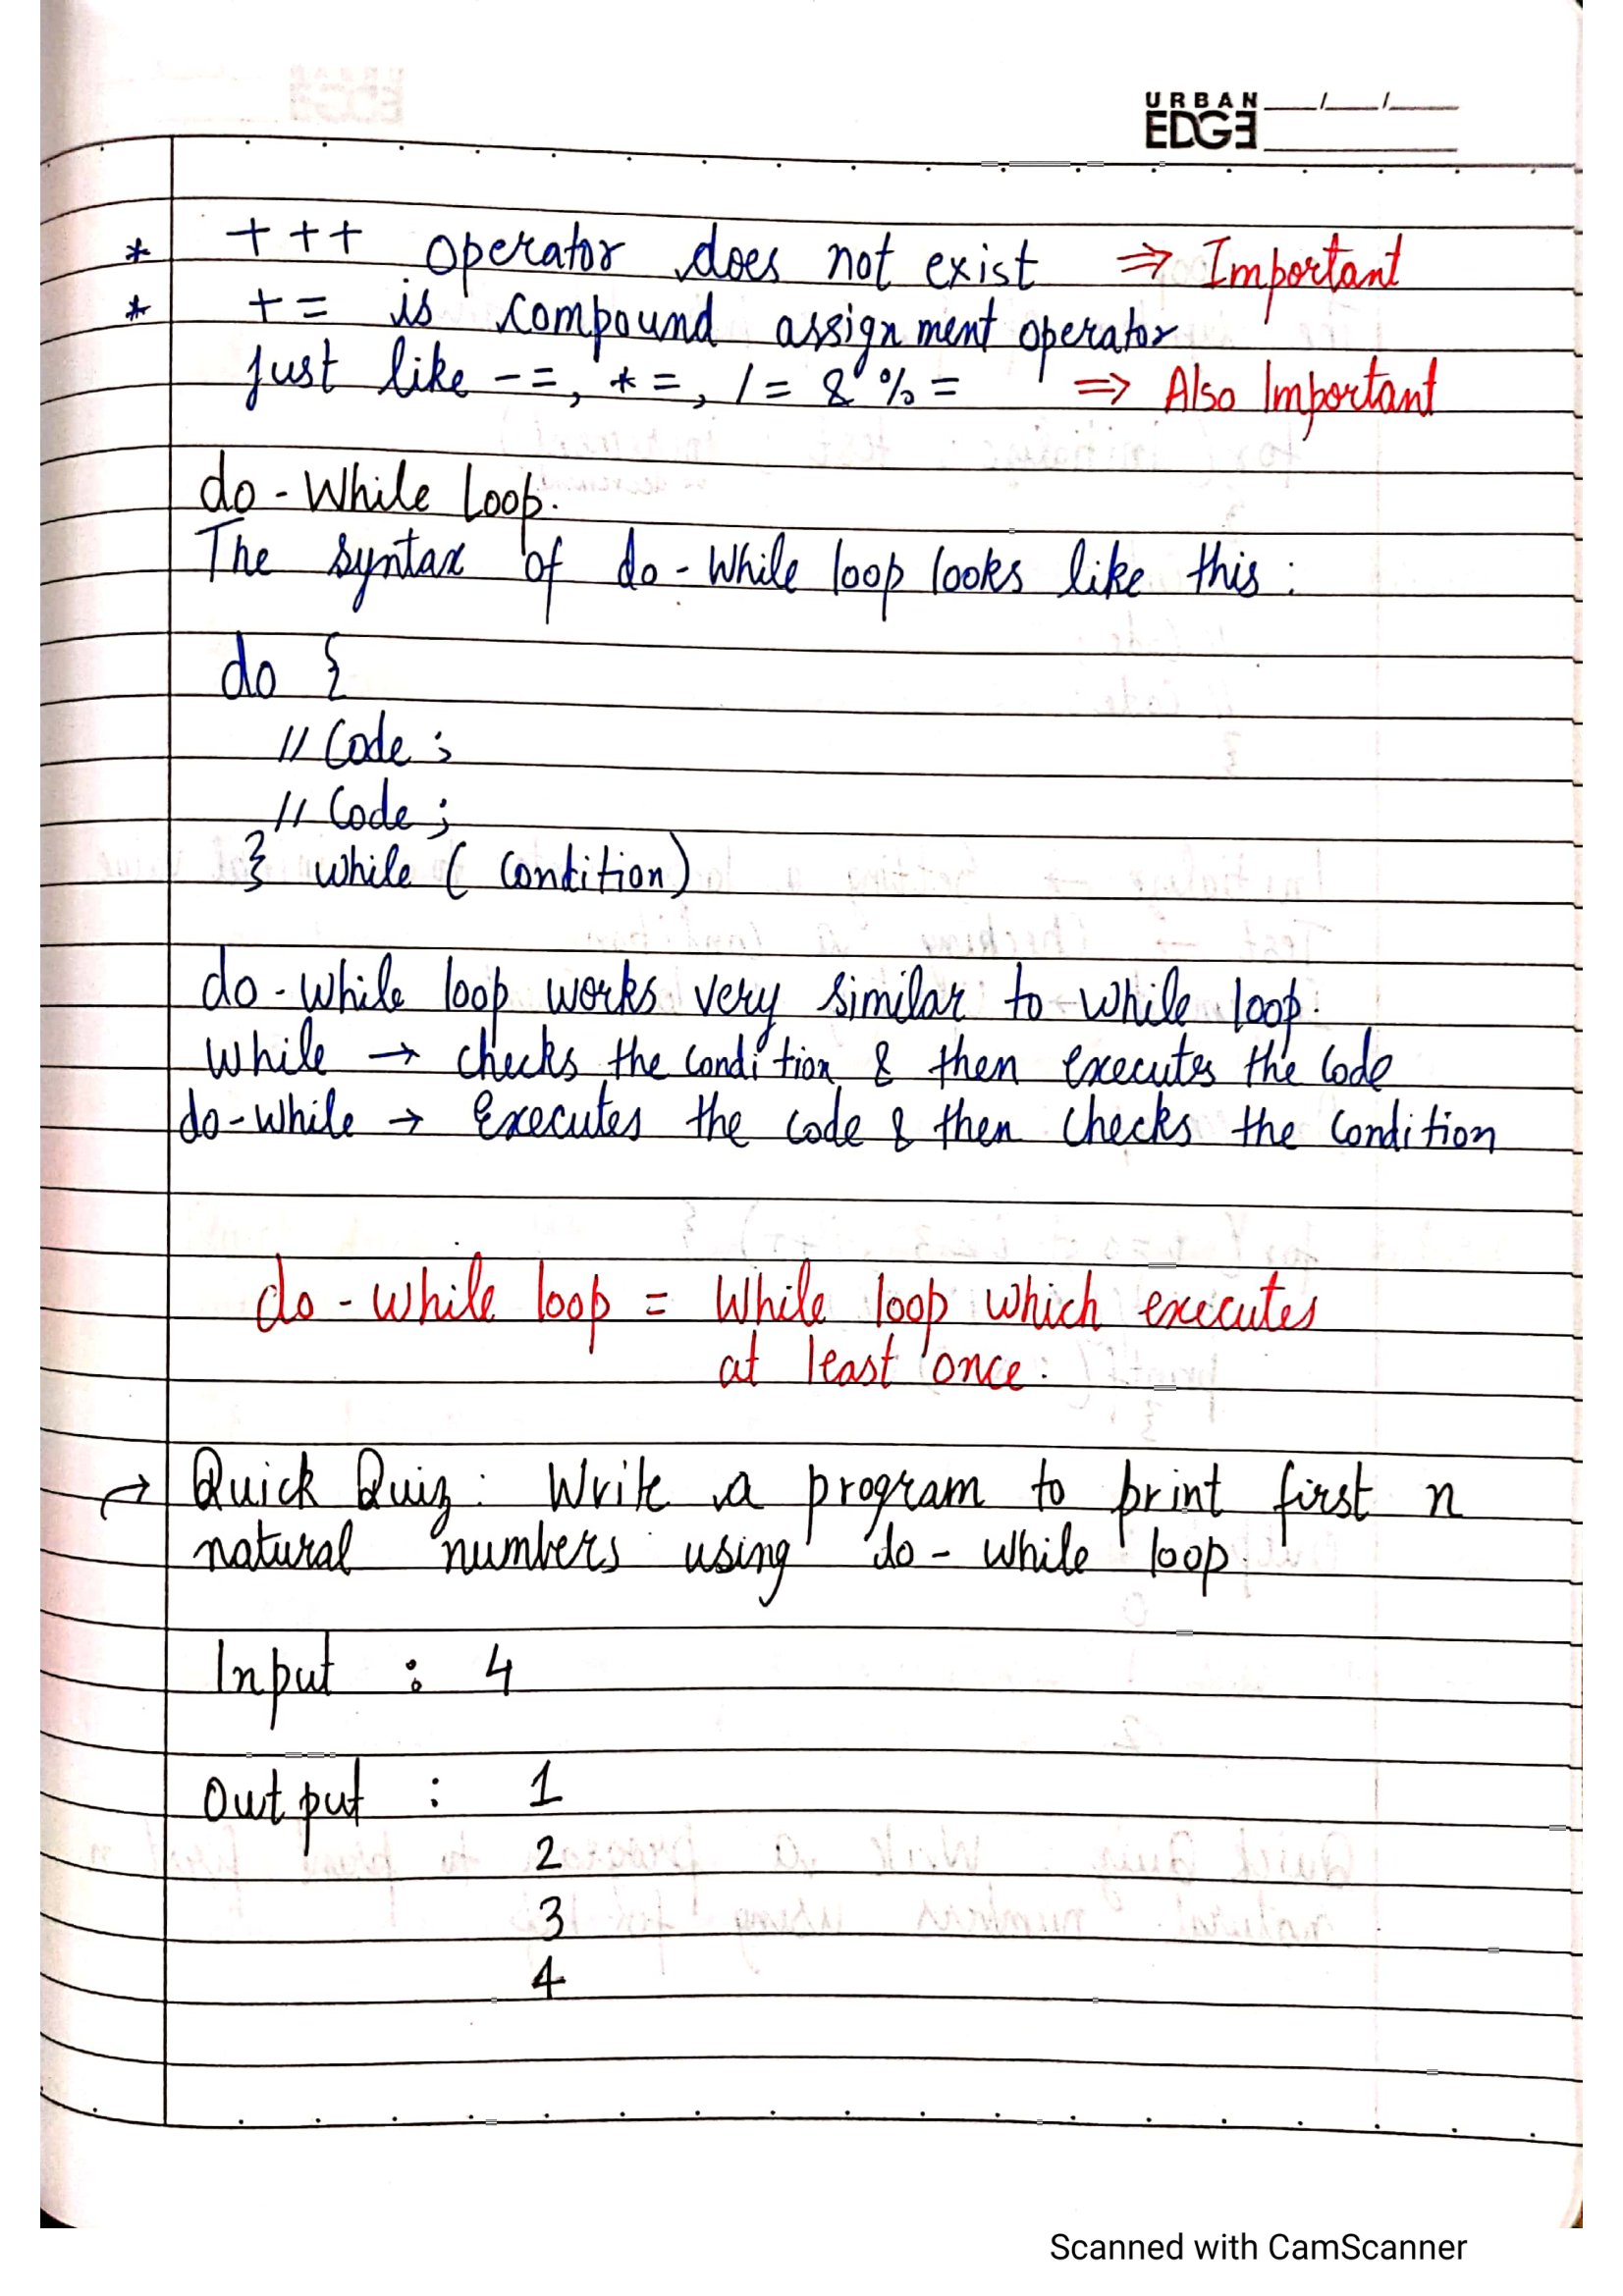 URBAN
EDGE
* +++ operator does not exist ⇒ Important
* += is compound assignment operator
just like -=, *=, /= & %= ⇒ Also Important
do-While Loop.
The syntax of do-while loop looks like this:
do {
// Code ;
// Code ;
} while ( Condition)
do-while loop works very similar to while loop.
While → checks the condition & then executes the code
do-while → Executes the code & then checks the condition
do-while loop = While loop which executes
at least once.
→ Quick Quiz: Write a program to print first n
natural numbers using do-while loop.
Input : 4
Output : 1
2
3
4
Scanned with CamScanner